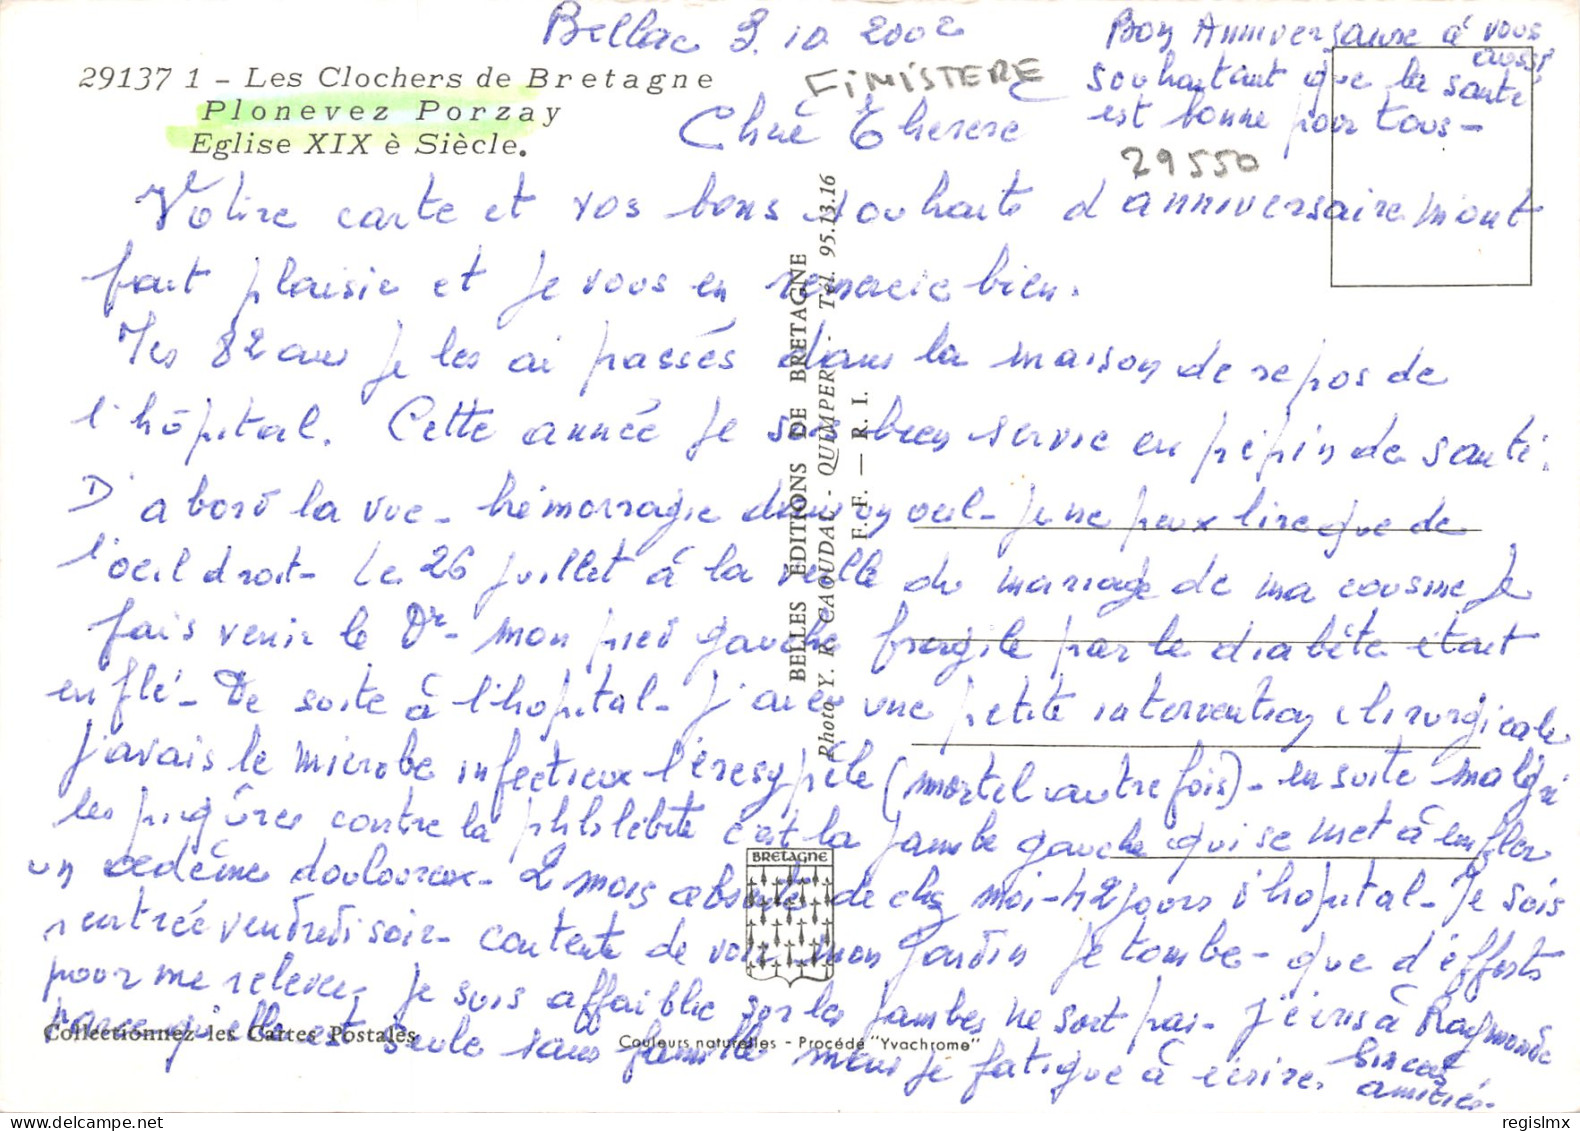 Bellac 3.10.2002
Bon Anniversaire à vous
aussi
souhaitant que la santé
est bonne pour tous-
29137 1 - Les Clochers de Bretagne
Plonevez Porzay
Eglise XIX è Siècle.
FINISTERE
29550
Chère Therese
Votre carte et vos bons souhaits d'anniversaire mont
fait plaisir et je vous en remercie bien.
Mes 82 ans je les ai passés dans la maison de repos de
l'hôpital. Cette année je suis bien servie en pépin de santé.
D'abord la vue - hémorragie dans un oeil - je ne peux lire que de
l'oeil droit - Le 26 juillet à la veille du mariage de ma cousine je
fais venir le Dr - mon pied gauche fragile par le diabète était
enflé - De suite à l'hopital - j'ai eu une petite intervention chirurgicale
j'avais le microbe infectieux l'éresypèle (mortel autrefois) - ensuite malgré
les piqûres contre la phlébite c'est la jambe gauche qui se met à enfler
un oedème douloureux - 2 mois absente de chez moi - 42 jours d'hopital - Je suis
rentrée vendredi soir - contente de voir mon jardin je tombe - que d'efforts
pour me relever, je suis affaiblie sur les jambes ne sort pas - J'écris à Raymonde
parce qu'elle est seule sans famille mais je fatigue à écrire. Sincères
amitiés -
BELLES EDITIONS DE BRETAGNE
Photo Y. R. CAOUDAL - QUIMPER - Tél. 95.13.16
F. F. — R. I.
BRETAGNE
Collectionnez les Cartes Postales
Couleurs naturelles - Procédé "Yvachrome"
regislmx